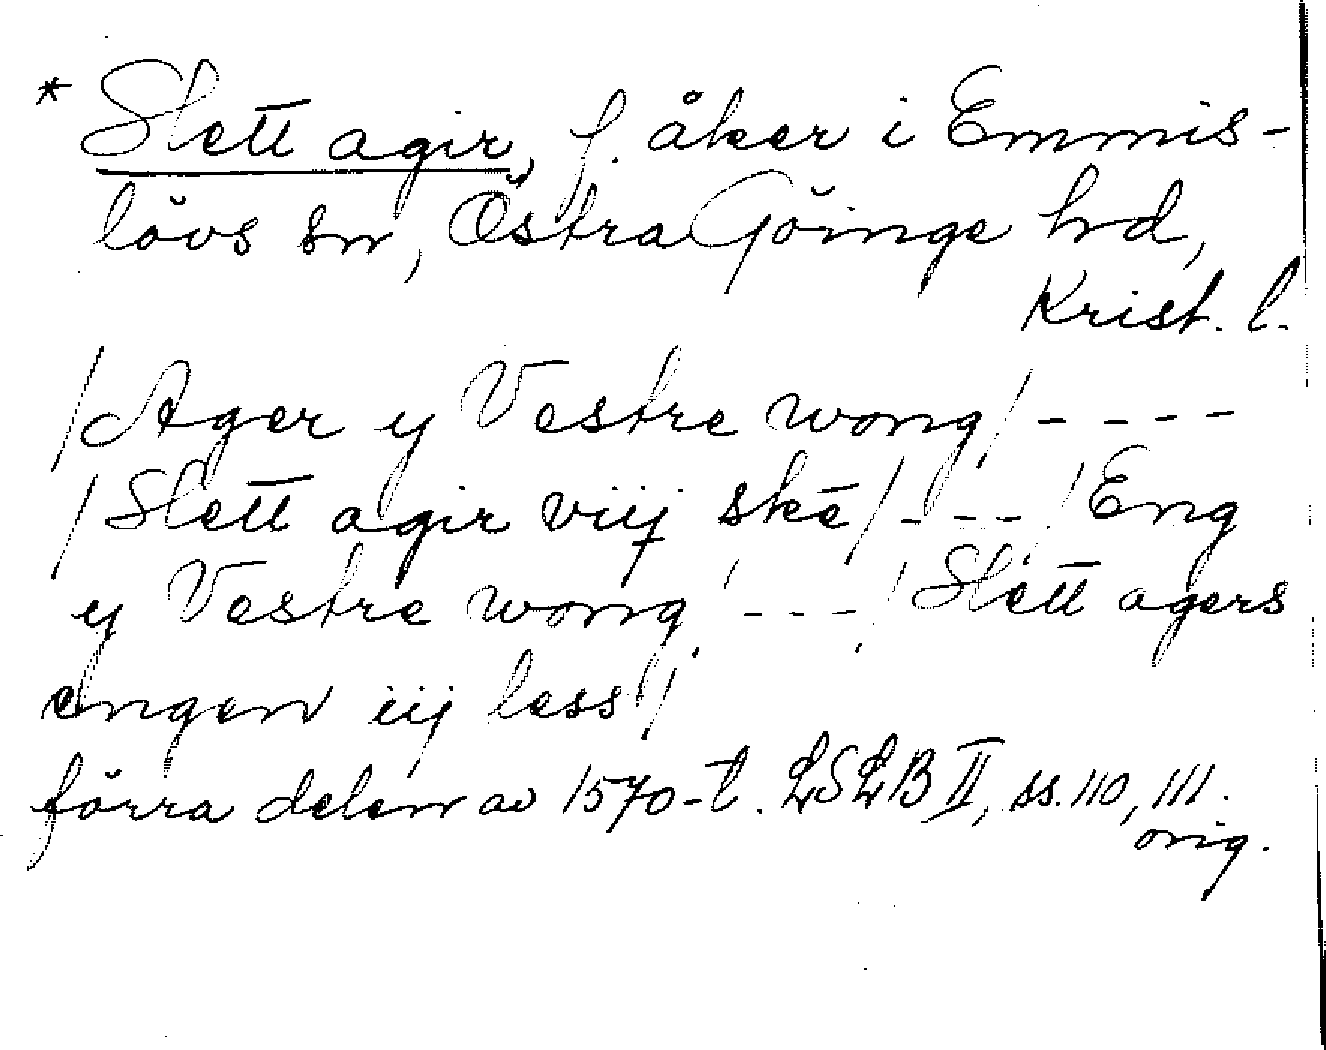 * Slett agir, f. åker i Emmis-
lövs sn, Östra Göinge hd,
Krist. l.
/Ager y Vestre wong/ - - - -
/Slett agir viij skē/ - - - /Eng
y Vestre wong/ - - - /Slett agers
engen iij less/
förra delen av 1570-t. LSLB II, ss. 110, 111.
orig.